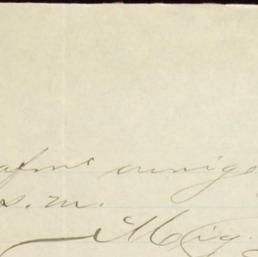 afmo amigo
s. m.
Mig.